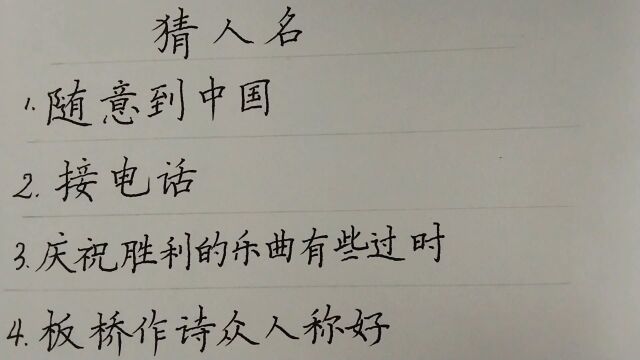 猜人名
1.随意到中国
2.接电话
3.庆祝胜利的乐曲有些过时
4.板桥作诗众人称好